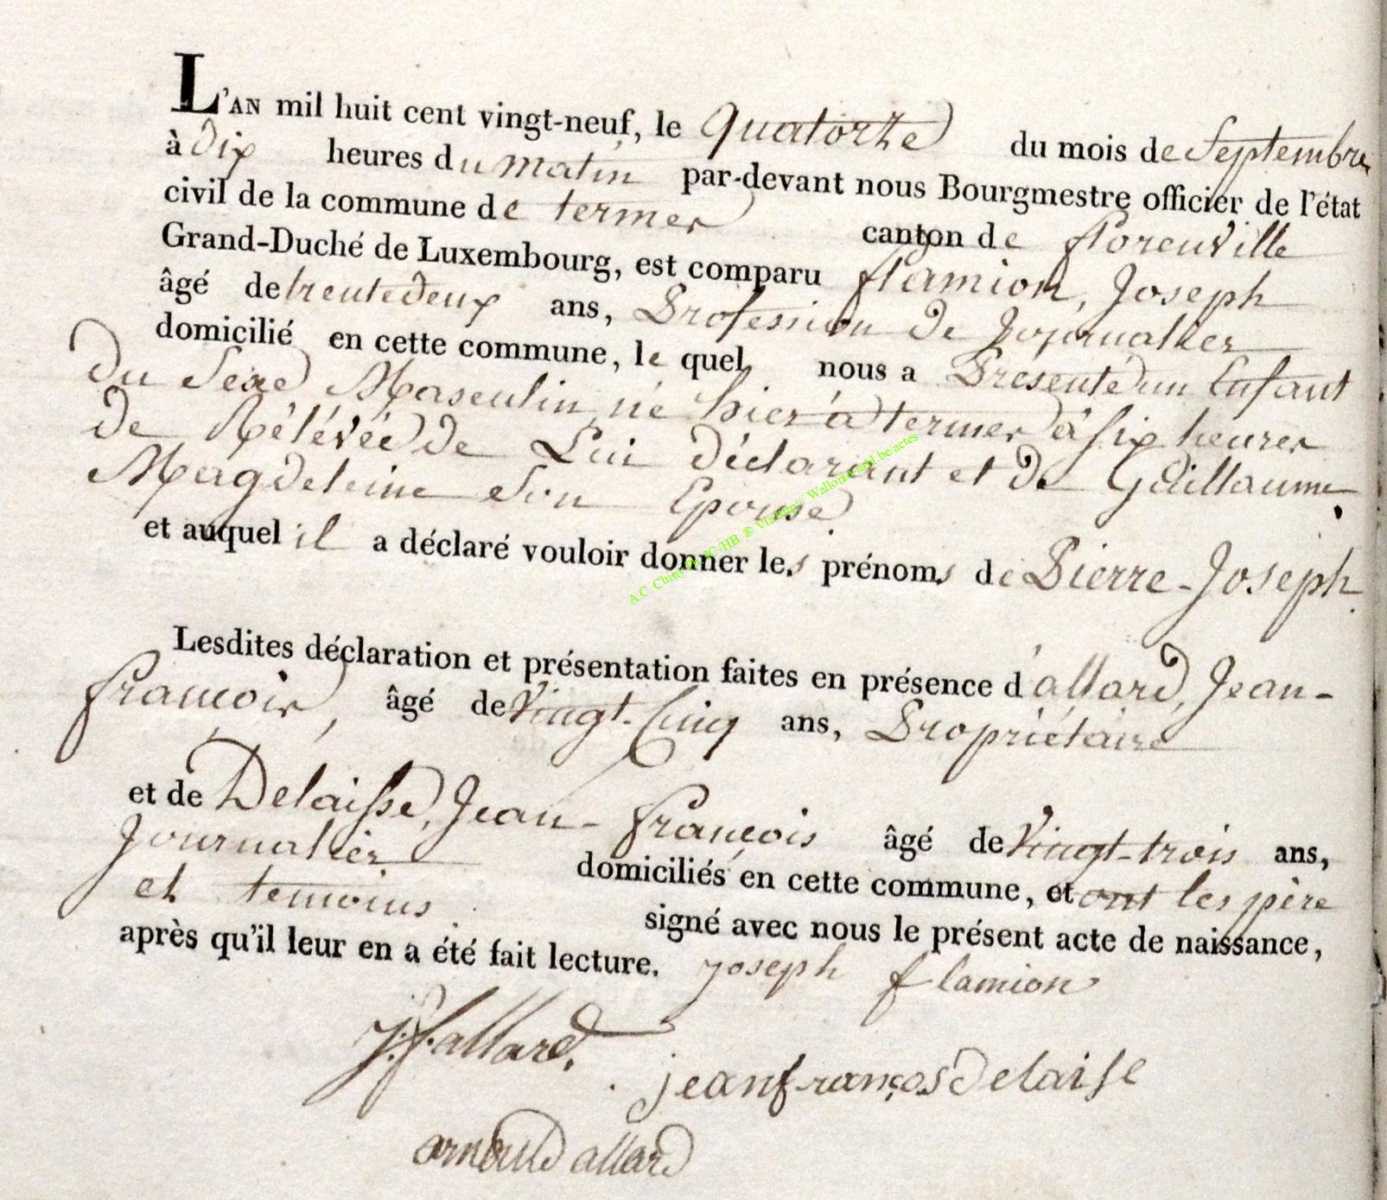 L'AN mil huit cent vingt-neuf, le quatorze du mois de Septembre
à dix heures du matin par-devant nous Bourgmestre officier de l'état
civil de la commune de termes canton de florenville
Grand-Duché de Luxembourg, est comparu flamion, Joseph
âgé de trentedeux ans, Profession de Journalier
domicilié en cette commune, le quel nous a Présenté un Enfant
du Sexe Masculin né hier à termes à six heures
de Rélévée de Lui déclarant et de Guillaume
Magdeleine Son Epouse.
et auquel il a déclaré vouloir donner les prénoms de Pierre-Joseph
Lesdites déclaration et présentation faites en présence d'allard, Jean-
françois, âgé de Vingt-Cinq ans, Propriétaire
et de Delaisse, Jean-françois âgé de Vingt-trois ans,
Journalier domiciliés en cette commune, et ont les père
et temoins. signé avec nous le présent acte de naissance,
après qu'il leur en a été fait lecture. Joseph flamion
J. f. allard.
jeanfrançois Delaise
arnould allard
A.C Chiny